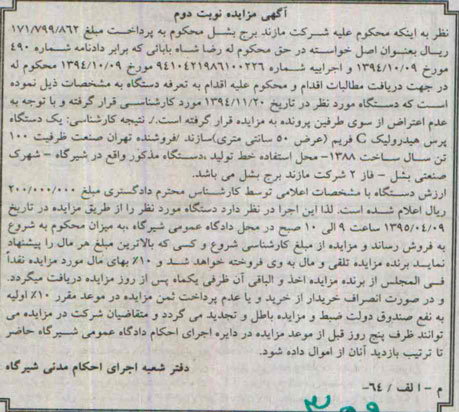 آگهی مزایده نوبت دوم
نظر به اینکه محکوم علیه شرکت مازند برج بشل محکوم به پرداخت مبلغ ۱۷۱/۷۹۹/۸۶۲
ریال بعنوان اصل خواسته در حق محکوم له رضا شاه بابائی که برابر دادنامه شماره ۴۹۰
مورخ ۱۳۹۴/۱۰/۰۹ و اجراییه شماره ۹۴۱۰۴۲۱۹۸۶۱۰۰۲۲۶ مورخ ۱۳۹۴/۱۰/۰۹ محکوم له
در جهت دریافت مطالبات اقدام و محکوم علیه اقدام به تعرفه دستگاه به مشخصات ذیل نموده
است که دستگاه مورد نظر در تاریخ ۱۳۹۴/۱۱/۲۰ مورد کارشناسی قرار گرفته و با توجه به
عدم اعتراض از سوی طرفین پرونده به مزایده قرار گرفته است./. نتیجه کارشناسی: یک دستگاه
پرس هیدرولیک C فریم (عرض ۵۰ سانتی متری)سازند /فروشنده تهران صنعت ظرفیت ۱۰۰
تن سال ساخت ۱۳۸۸- محل استفاده خط تولید ،دستگاه مذکور واقع در شیرگاه – شهرک
صنعتی بشل – فاز ۲ شرکت مازند برج بشل می باشد.
ارزش دستگاه با مشخصات اعلامی توسط کارشناس محترم دادگستری مبلغ ۲۰۰/۰۰۰/۰۰۰
ریال اعلام شده است. لذا این اجرا در نظر دارد دستگاه مورد نظر را از طریق مزایده در تاریخ
۱۳۹۵/۰۴/۰۹ ساعت ۹ الی ۱۰ صبح در محل دادگاه عمومی شیرگاه ،به میزان محکوم به شروع
به فروش رساند و مزایده از مبلغ کارشناسی شروع و کسی که بالاترین مبلغ هر مال را پیشنهاد
نماید برنده مزایده تلقی و مال به وی فروخته خواهد شد و ۱۰% بهای مال مورد مزایده نقداً
فی المجلس از برنده مزایده اخذ و الباقی آن ظرفی یکماه پس از روز مزایده دریافت میگردد.
و در صورت انصراف خریدار از خرید و یا عدم پرداخت ثمن مزایده در موعد مقرر ۱۰% اولیه
به نفع صندوق دولت ضبط و مزایده باطل و تجدید می گردد و متقاضیان شرکت در مزایده می
توانند ظرف پنج روز قبل از موعد مزایده در دایره اجرای احکام دادگاه عمومی شیرگاه حاضر
تا ترتیب بازدید آنان از اموال داده شود.
دفتر شعبه اجرای احکام مدنی شیرگاه
م – ا لف / ۶۴-